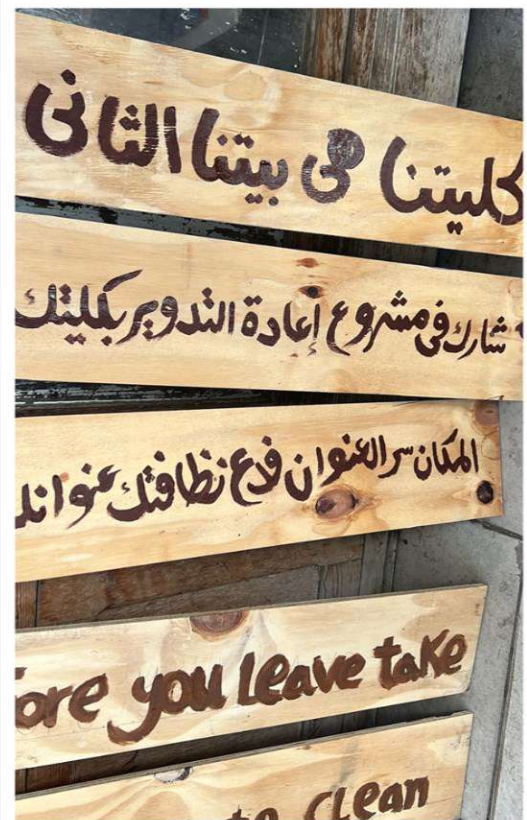 كليتنا هى بيتنا الثانى
شارك فى مشروع إعادة التدوير بكليتك
المكان سر العنوان فدع نظافتك عنوانك
ore you leave take
to clean